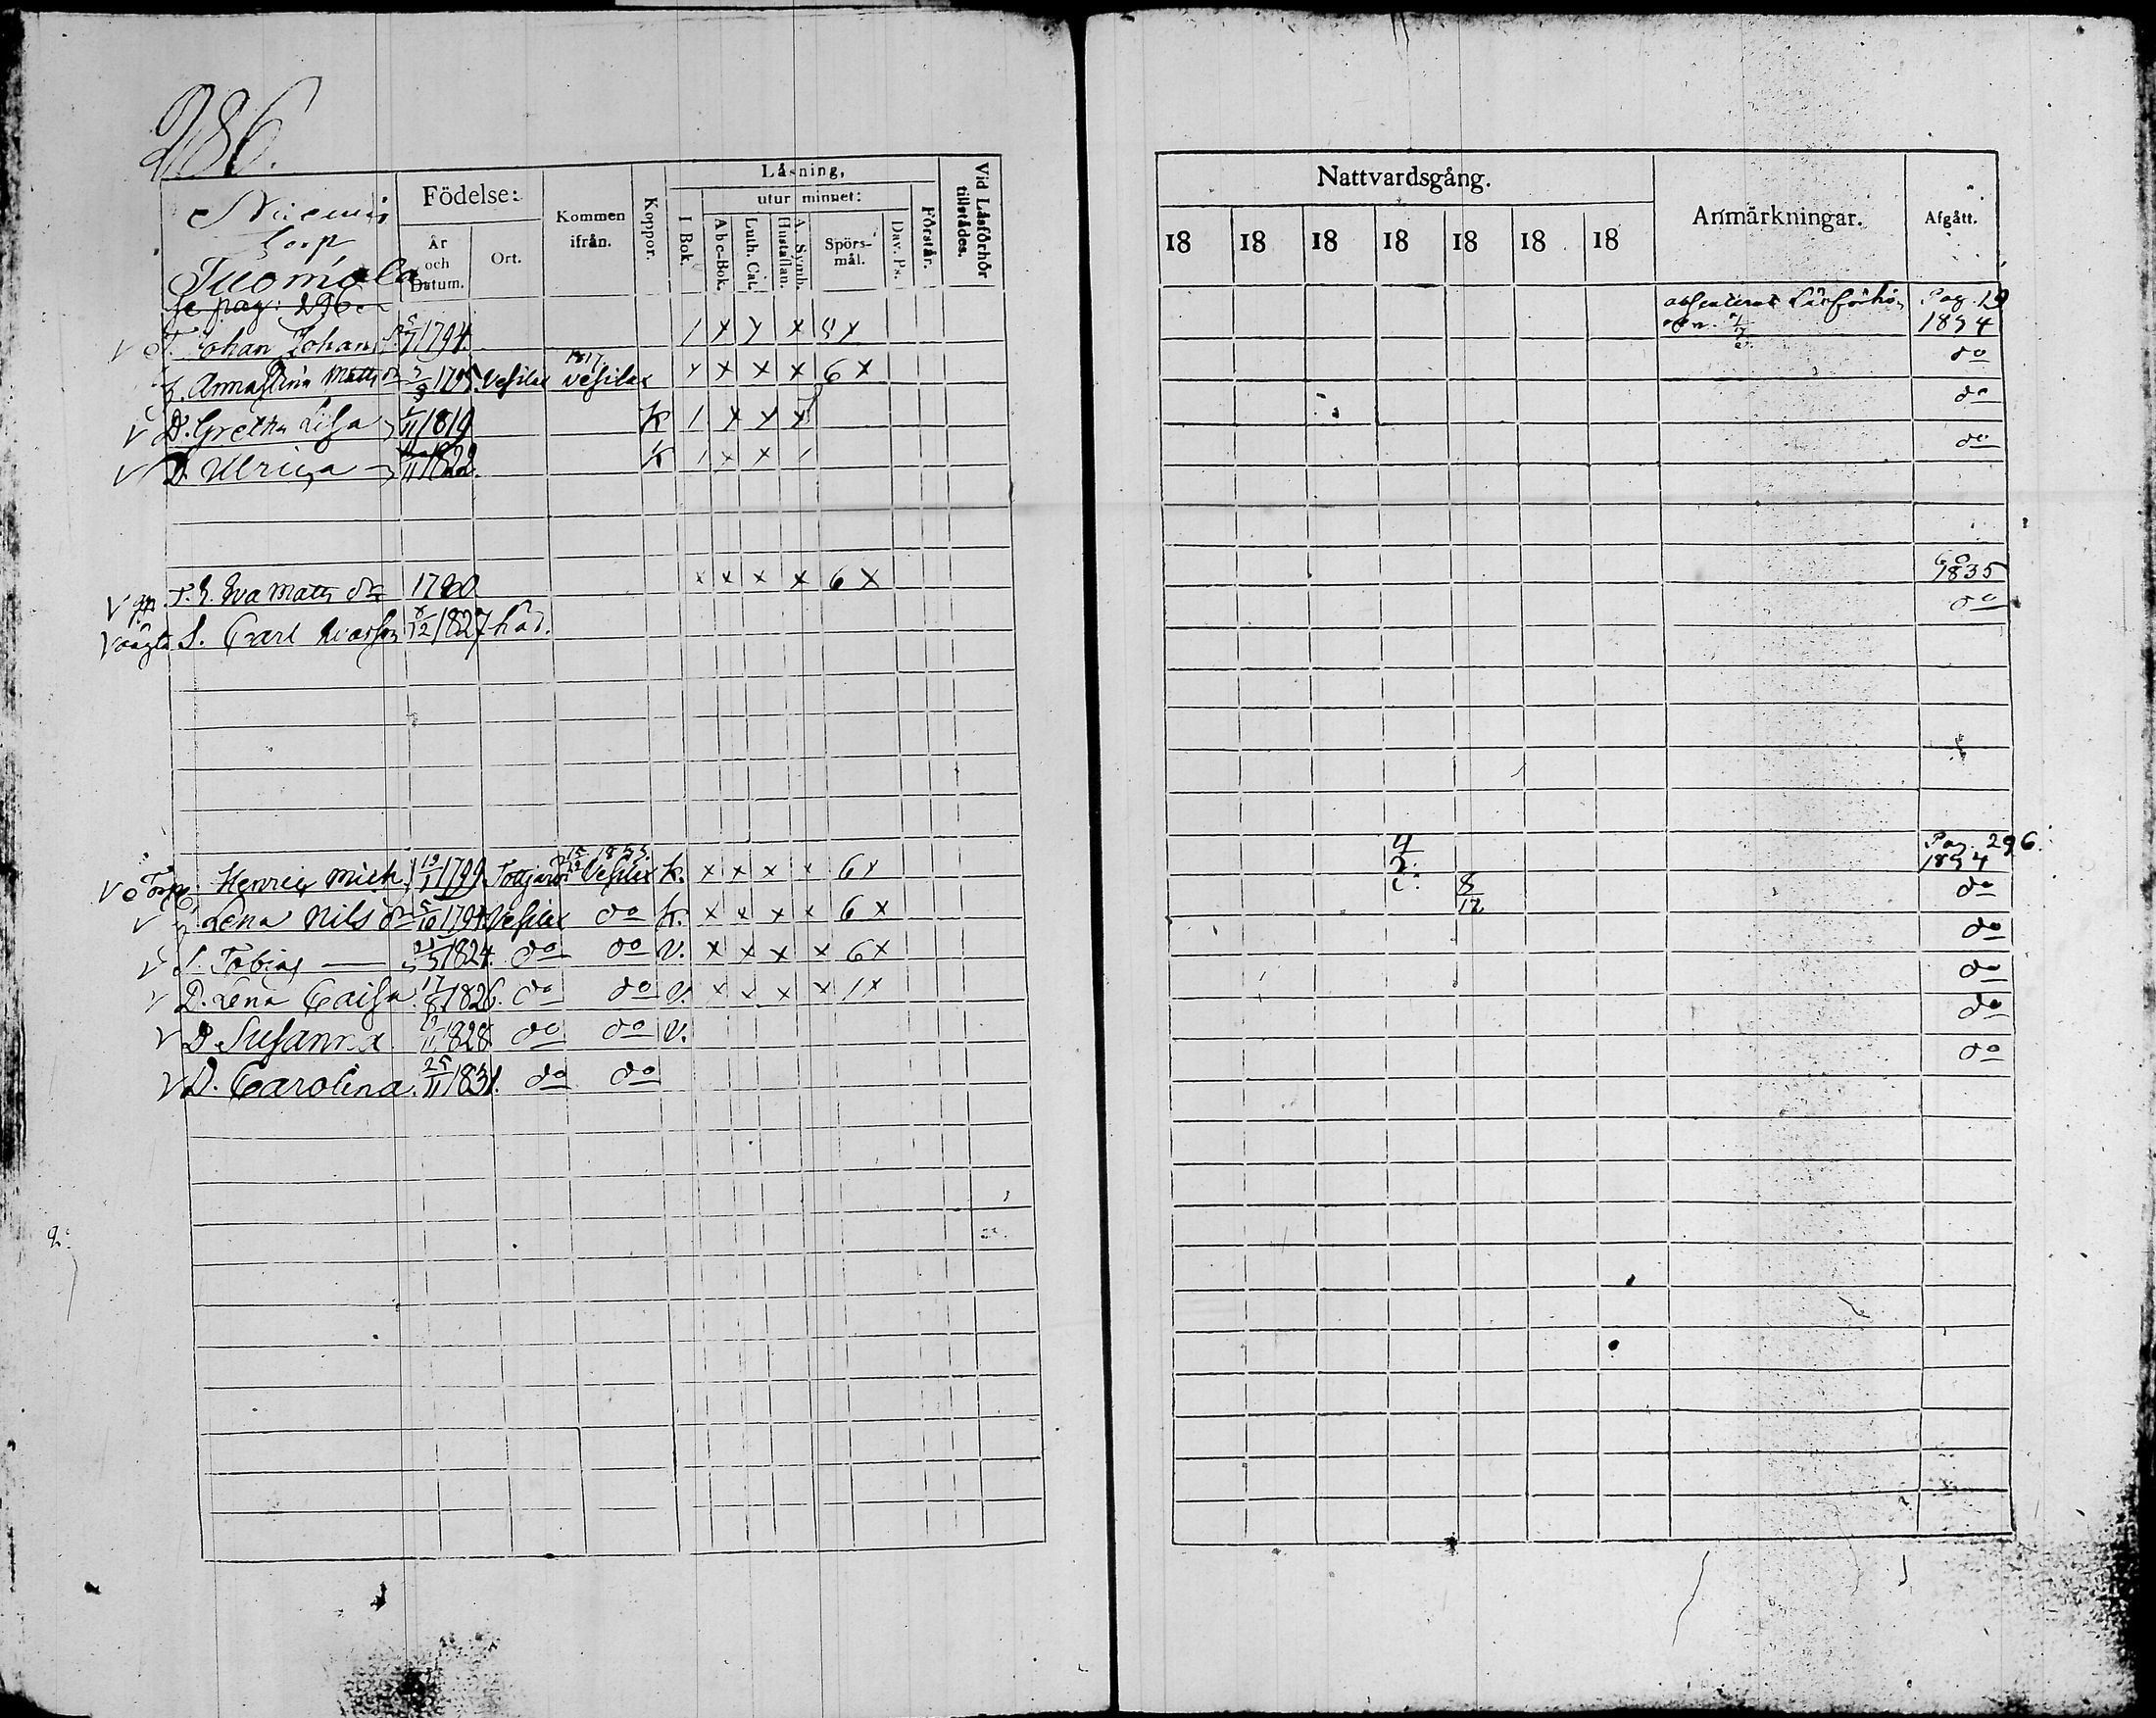 286.
Niemis
Torp
Tuomala
se pag: 296
Födelse:
År och Datum.
Ort.
Kommen ifrån.
Koppor.
Läsning,
I Bok.
utur minnet:
Abc-Bok.
Luth. Cat.
A. Symb. Hustaflan.
Spörsmål.
Dav. Ps.
Förstår.
Vid Läsförhör tillstädes.
Nattvardsgång.
18 18 18 18 18 18 18
Anmärkningar.
Afgått.
V Johan Johan 1794. 1 x y x 5 x Läsförhör Pag. 19 1834
h. Anna Stina Matts dr 1795 Vesilax 1817 Vesilax x x x x 6 x do
V D. Gretha Lisa 11 1819 K 1 x y x do
V D. Ulrica 11 1822. K 1 x x 1 do
V Eva Matts dr 1790 x x x x 6 x 1835
V S. Carl 12 1827 do
V Torp. Henric Mich. 1799 15/12 1833. Vesilax K. x x x x 6 x 4 Pag. 296. 1834
V h. Lena Nils dr 5/10 1794 Vesilax do K. x x x x 6 x 8/12 do
V S. Tobias 1824. do do V. x x x x 6 x do
V D. Lena Caisa 17/8 1826. do do V. x x x x 1 x do
V D. Susanna 1828 do do V. do
V D. Carolina. 25/11 1831. do do do